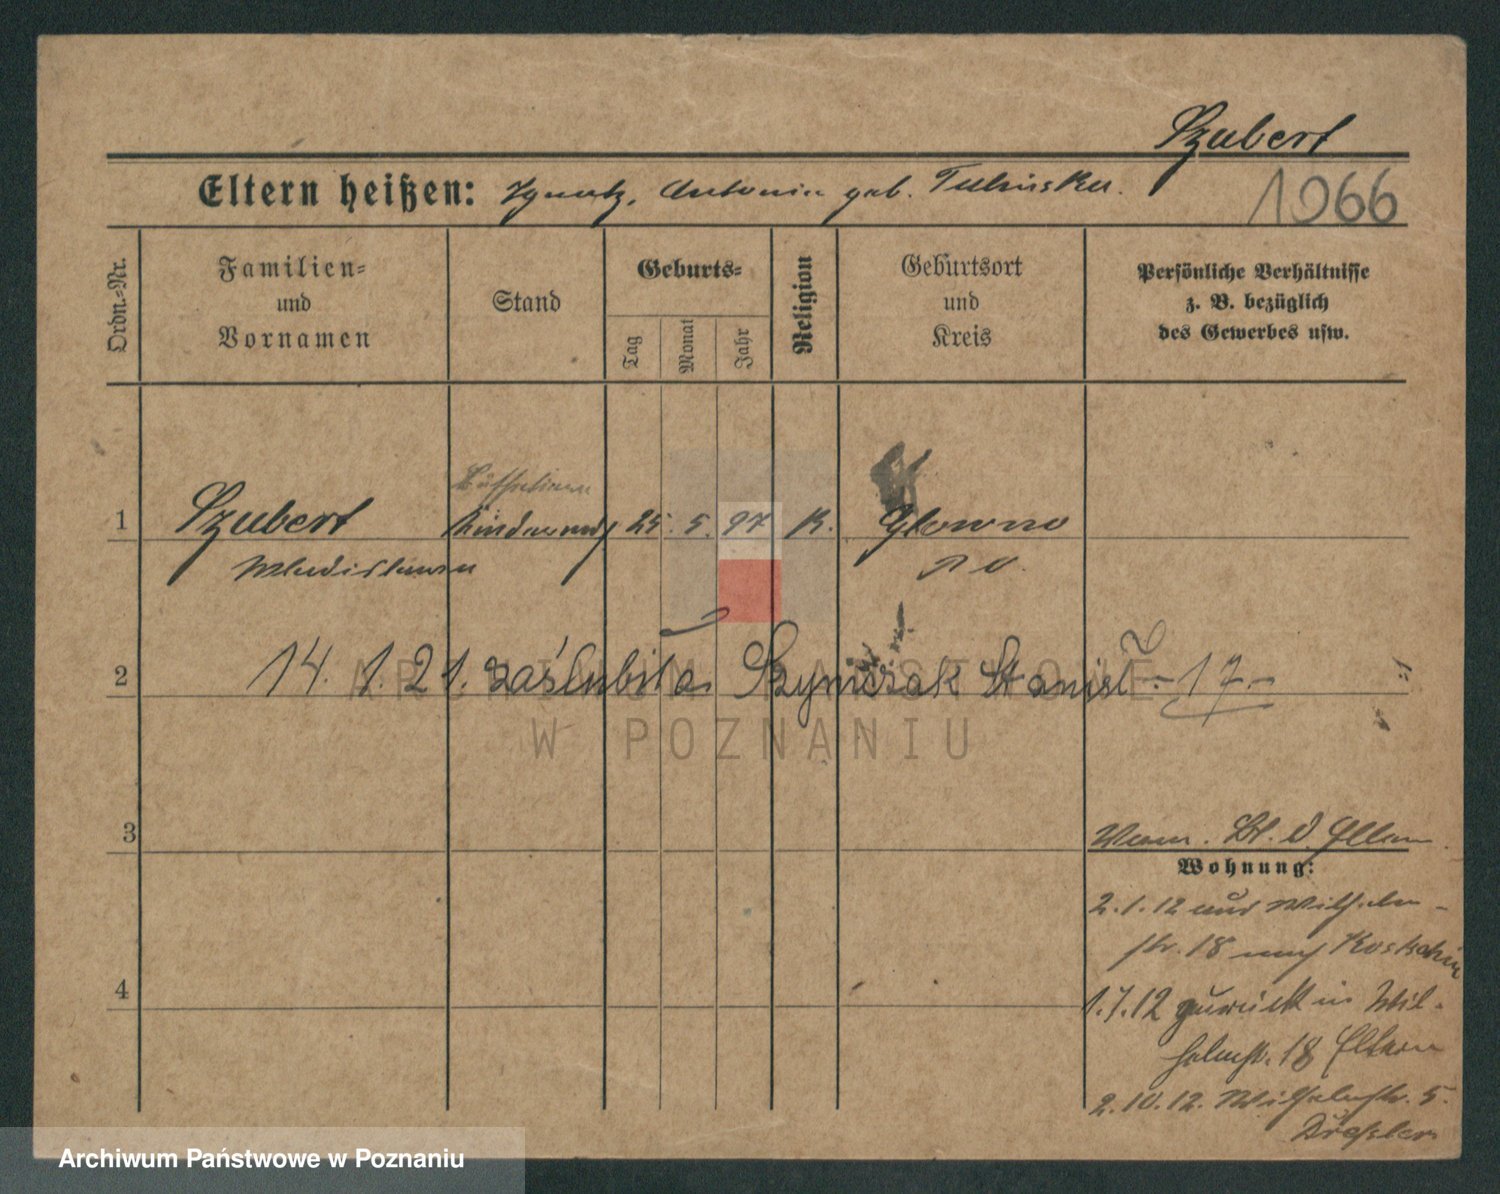 Szubert
Eltern heißen: Ignatz, Antonia geb.
1966
Ordn.-Nr.
Familien-
und
Vornamen
Stand
Geburts-
Tag
Monat
Jahr
Religion
Geburtsort
und
Kreis
Persönliche Verhältnisse
z. B. bezüglich
des Gewerbes usw.
1 Szubert 25. 5. 97 K. Glowno
Wladislawa P. O.
2 14. 1. 21. zaślubiła Szymczak Stanisł. - 17.-
3
Wohnung:
2.1.12 aus Wilhelm-
str. 18 nach Kostschin
4
1.7.12 zurück in Wil-
helmstr. 18 Eltern
2.10.12. Wilhelmstr. 5.
ARCHIWUM PAŃSTWOWE
W POZNANIU
Archiwum Państwowe w Poznaniu